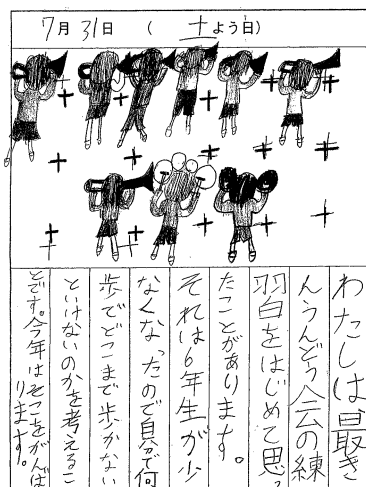 7月31日 ( 土よう日)
わたしは最き
んうんどう会の練
習をはじめて思っ
たことがあります。
それは6年生が少
なくなったので自分で何
歩でどこまで歩かない
といけないのかを考えるこ
とです。今年はそこをがんば
ります。